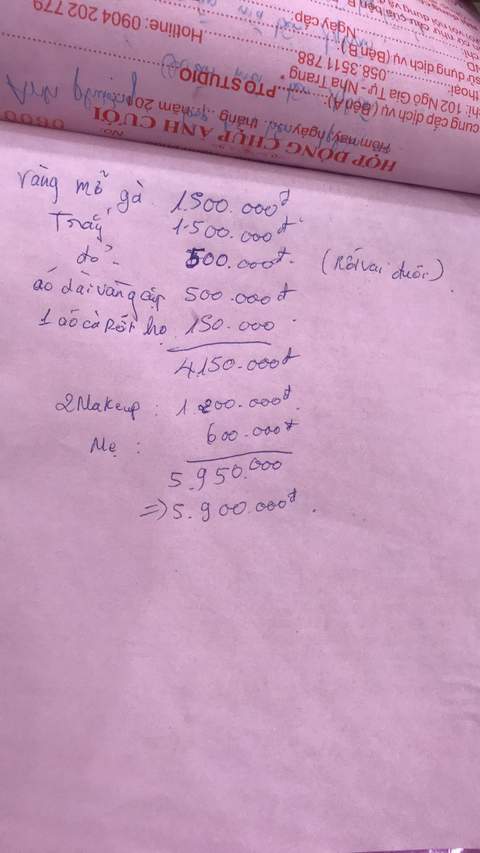 HỢP ĐỒNG CHỤP ẢNH CƯỚI
Hôm nay, ngày tháng năm 20
cung cấp dịch vụ (Bên A): PTO STUDIO
chỉ: 102 Ngô Gia Tự - Nha Trang
thoại: 058.3511.788 Hotline: 0904 202 779
sử dụng dịch vụ (Bên B)
Ngày cấp
Vàng mỡ gà 1.500.000đ
Trắng 1.500.000đ
đỏ 500.000đ (Rối vai đuôi)
áo dài vàng cặp 500.000đ
1 áo cà Rốt họ 150.000
4.150.000đ
2 Makeup : 1.200.000đ
Mẹ : 600.000đ
5.950.000
=> 5.900.000đ.